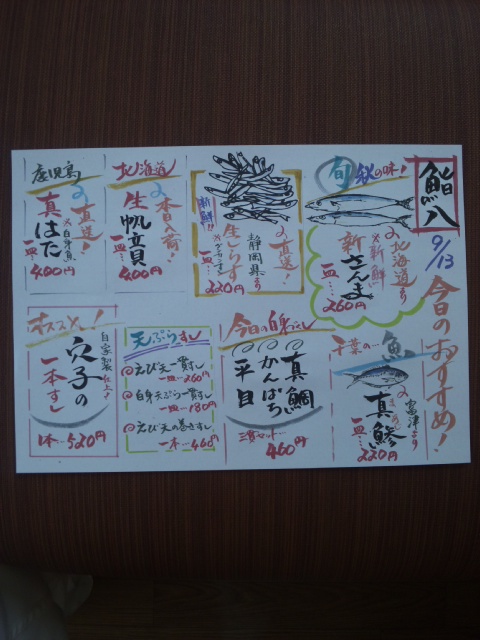 鮨八
9/13
今日のおすすめ!
旬 秋の味!
北海道より
新鮮
新さんま
一皿…260円
直送!
静岡県より
生しらす
新鮮!!
一皿…220円
北海道
本日入荷!
生帆立貝
一皿…400円
鹿児島
の直送!
真はた
白身魚
一皿400円
千葉の…魚
富津より
真鯵
一皿…220円
今日の白身づくし
真鯛
かんぱち
平目
三貫セット…460円
天ぷらすし
えび天一貫すし
一皿…260円
白身天ぷら一貫すし
一皿…180円
えび天の巻きすし
一本…460円
オススメ!
自家製仕上!
穴子の
一本すし
1本…520円